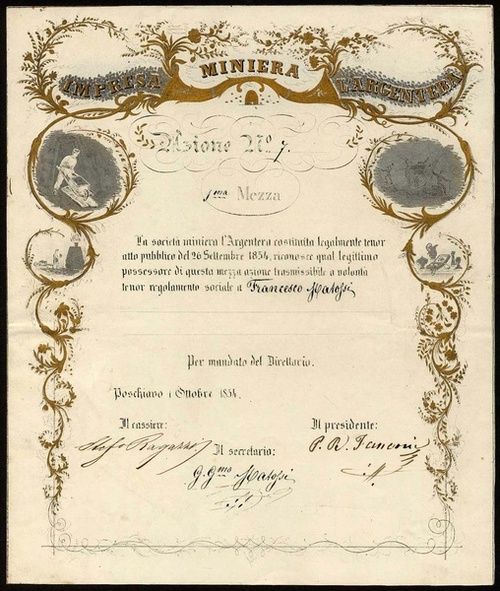 IMPRESA MINIERA L'ARGENTERA
Azione No. 7.
1ma Mezza
La società miniera l'Argentera costituita legalmente tenor
atto pubblico del 26 Settembre 1854, riconosce qual legittimo
possessore di questa mezza azione trasmissibile a volontà
tenor regolamento sociale a Francesco Matossi
Per mandato del Direttorio.
Poschiavo 1 Ottobre 1854.
Il cassiere: Il presidente:
Ragazzi
Il secretario:
G. Gmo Matossi